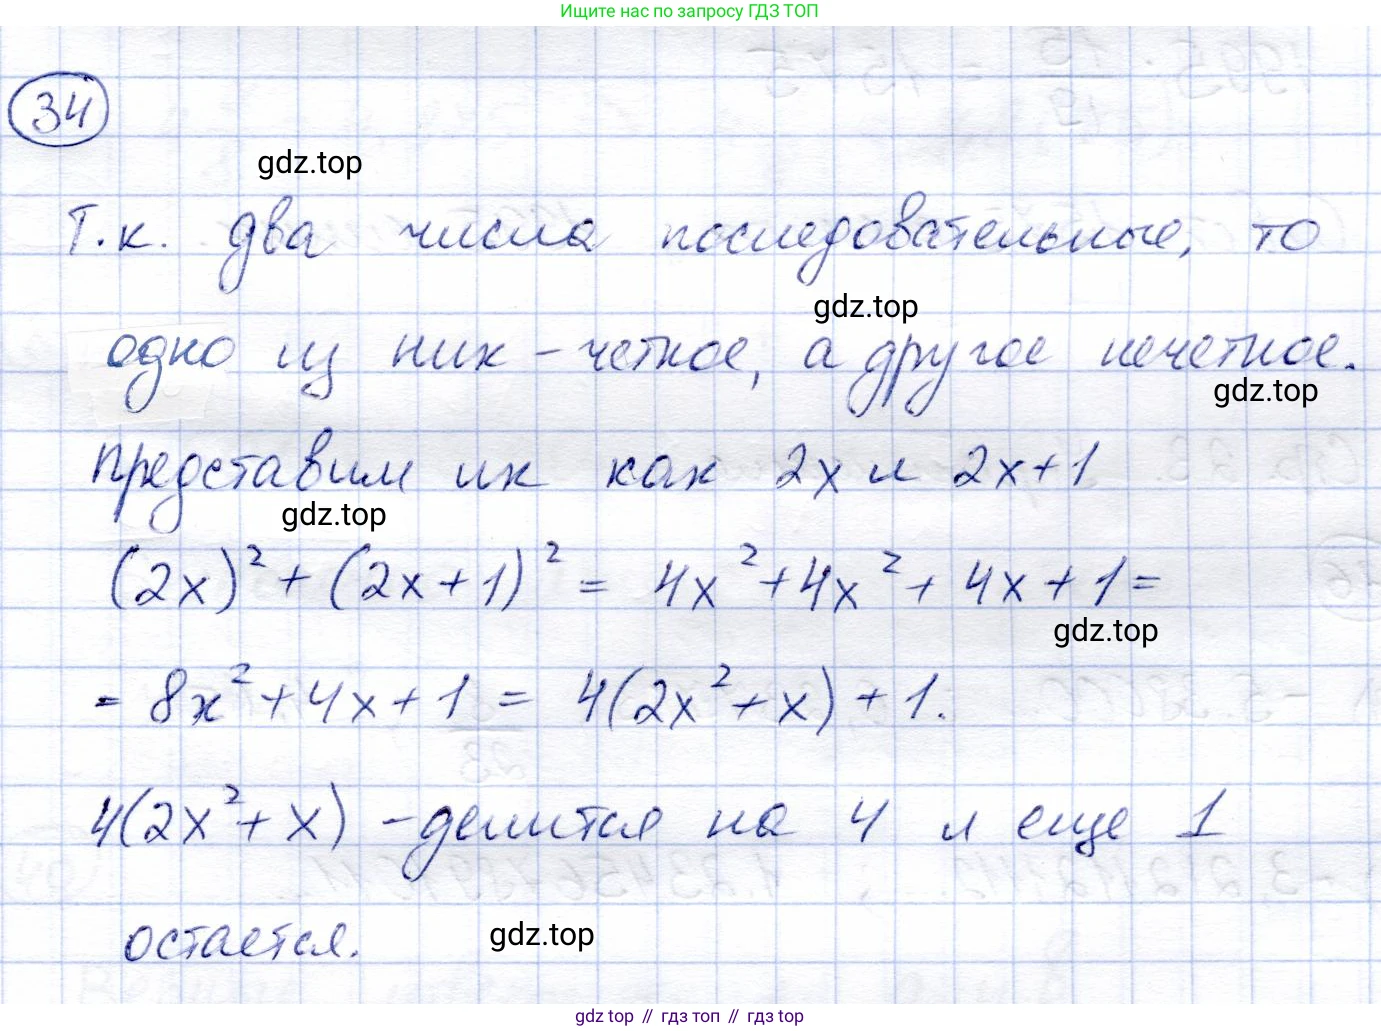 Ищите нас по запросу ГДЗ ТОП
34
gdz.top
Т.к. два числа последовательные, то
gdz.top
одно из них - четное, а другое нечетное.
gdz.top
представим их как 2x и 2x+1
gdz.top
(2x)² + (2x+1)² = 4x² + 4x² + 4x + 1 =
gdz.top
= 8x² + 4x + 1 = 4(2x² + x) + 1.
4(2x² + x) - делится на 4 и еще 1
остается.
gdz.top
gdz top // гдз топ // гдз top